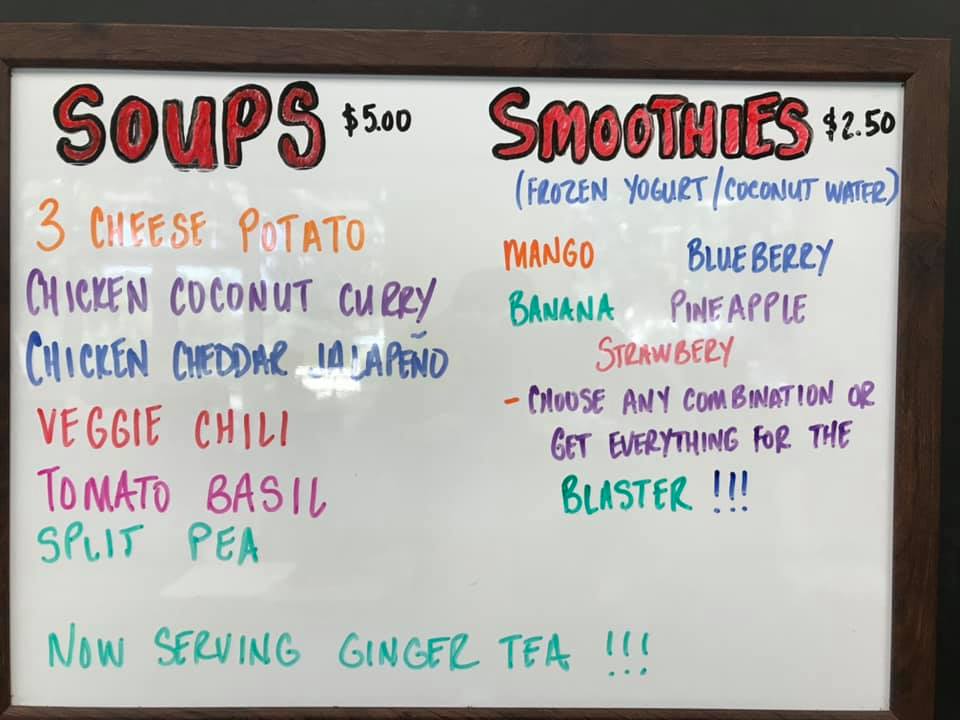 SOUPS $5.00
3 CHEESE POTATO
CHICKEN COCONUT CURRY
CHICKEN CHEDDAR JALAPEÑO
VEGGIE CHILI
TOMATO BASIL
SPLIT PEA
SMOOTHIES $2.50
(FROZEN YOGURT/COCONUT WATER)
MANGO BLUEBERRY
BANANA PINEAPPLE
STRAWBERY
- CHOOSE ANY COMBINATION OR
GET EVERYTHING FOR THE
BLASTER !!!
NOW SERVING GINGER TEA !!!